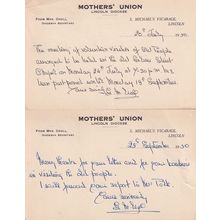 MOTHERS' UNION
LINCOLN DIOCESE
FROM MRS.
DIOCESAN SECRETARY
S. MICHAEL'S VICARAGE,
LINCOLN
July 1950
The meeting of voluntary visitors of Old People
arranged to be held in the Old Palace
Chapel on Monday 24th July at
has been postponed until Monday 18th September.
Yours sincerely
MOTHERS' UNION
LINCOLN DIOCESE
FROM MRS.
DIOCESAN SECRETARY
S. MICHAEL'S VICARAGE,
LINCOLN
September 1950
Many thanks for your letter and for your kindness
in visiting the old people.
I will forward your report to Mrs
Yours sincerely